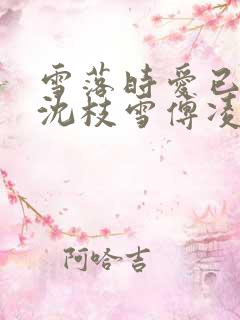 雪落時愛已
沈枝雪傅凌
阿哈吉